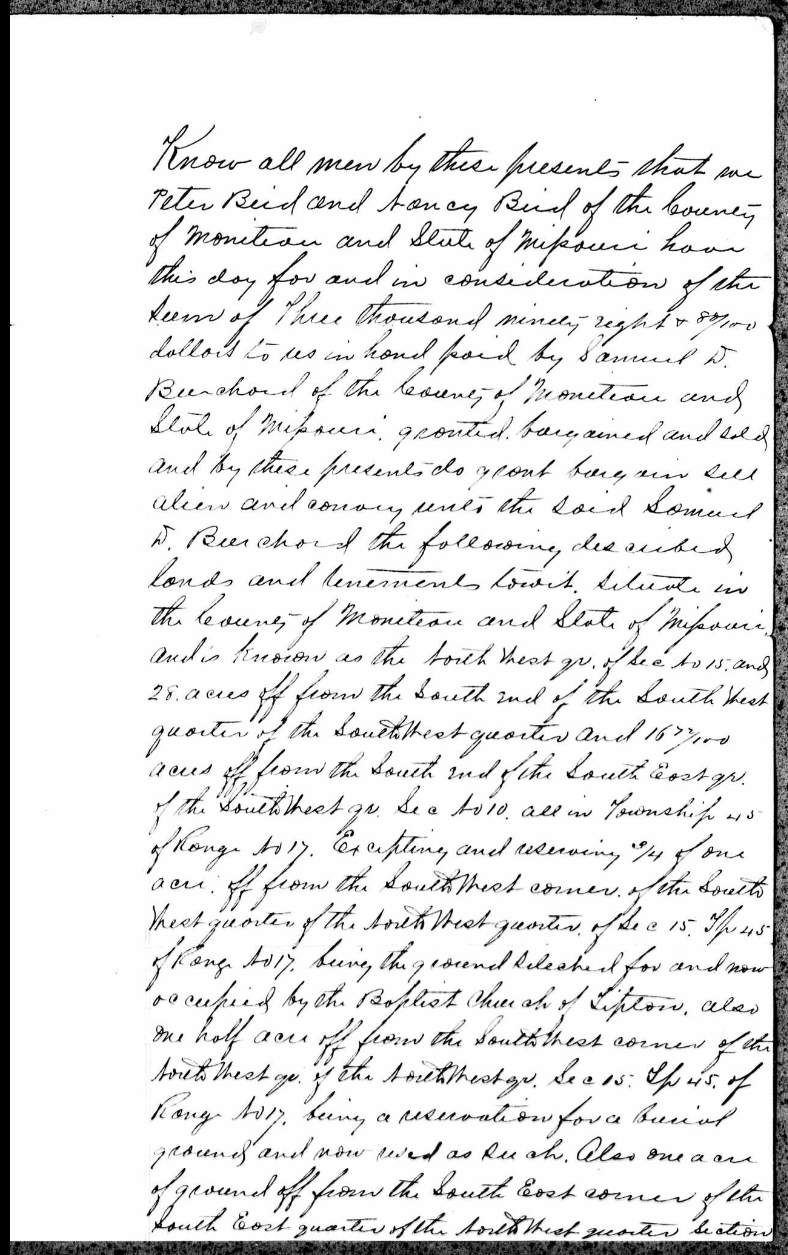 Know all men by these presents that we
Peter Bird and Nancy Bird of the County
of Moniteau and State of Missouri have
this day for and in consideration of the
sum of Three thousand ninety eight &
dollars to us in hand paid by Samuel D.
Burchard of the County of Moniteau and
State of Missouri, granted, bargained and sold
and by these presents do grant bargain sell
alien and convey unto the said Samuel
D. Burchard the following described
lands and tenements towit. Situate in
the County of Moniteau and State of Missouri,
and is known as the North West qr. of Sec No 15. and
28. acres off from the South end of the South West
quarter of the South West quarter and 16 72/100
acres off from the South end of the South East qr.
of the South West qr. Sec No 10. all in Township 45
of Range No 17. Excepting and reserving 3/4 of one
acre. off from the South West corner. of the South
West quarter of the North West quarter. of Sec 15. Tp 45
of Range No 17. being the ground selected for and now
occupied by the Baptist Church of Tipton, also
one half acre off from the South West corner of the
North West qr. of the North West qr. Sec 15. Tp 45. of
Range No 17. being a reservation for a burial
ground and now used as such. Also one acre
of ground off from the South East corner of the
South East quarter of the North West quarter Section